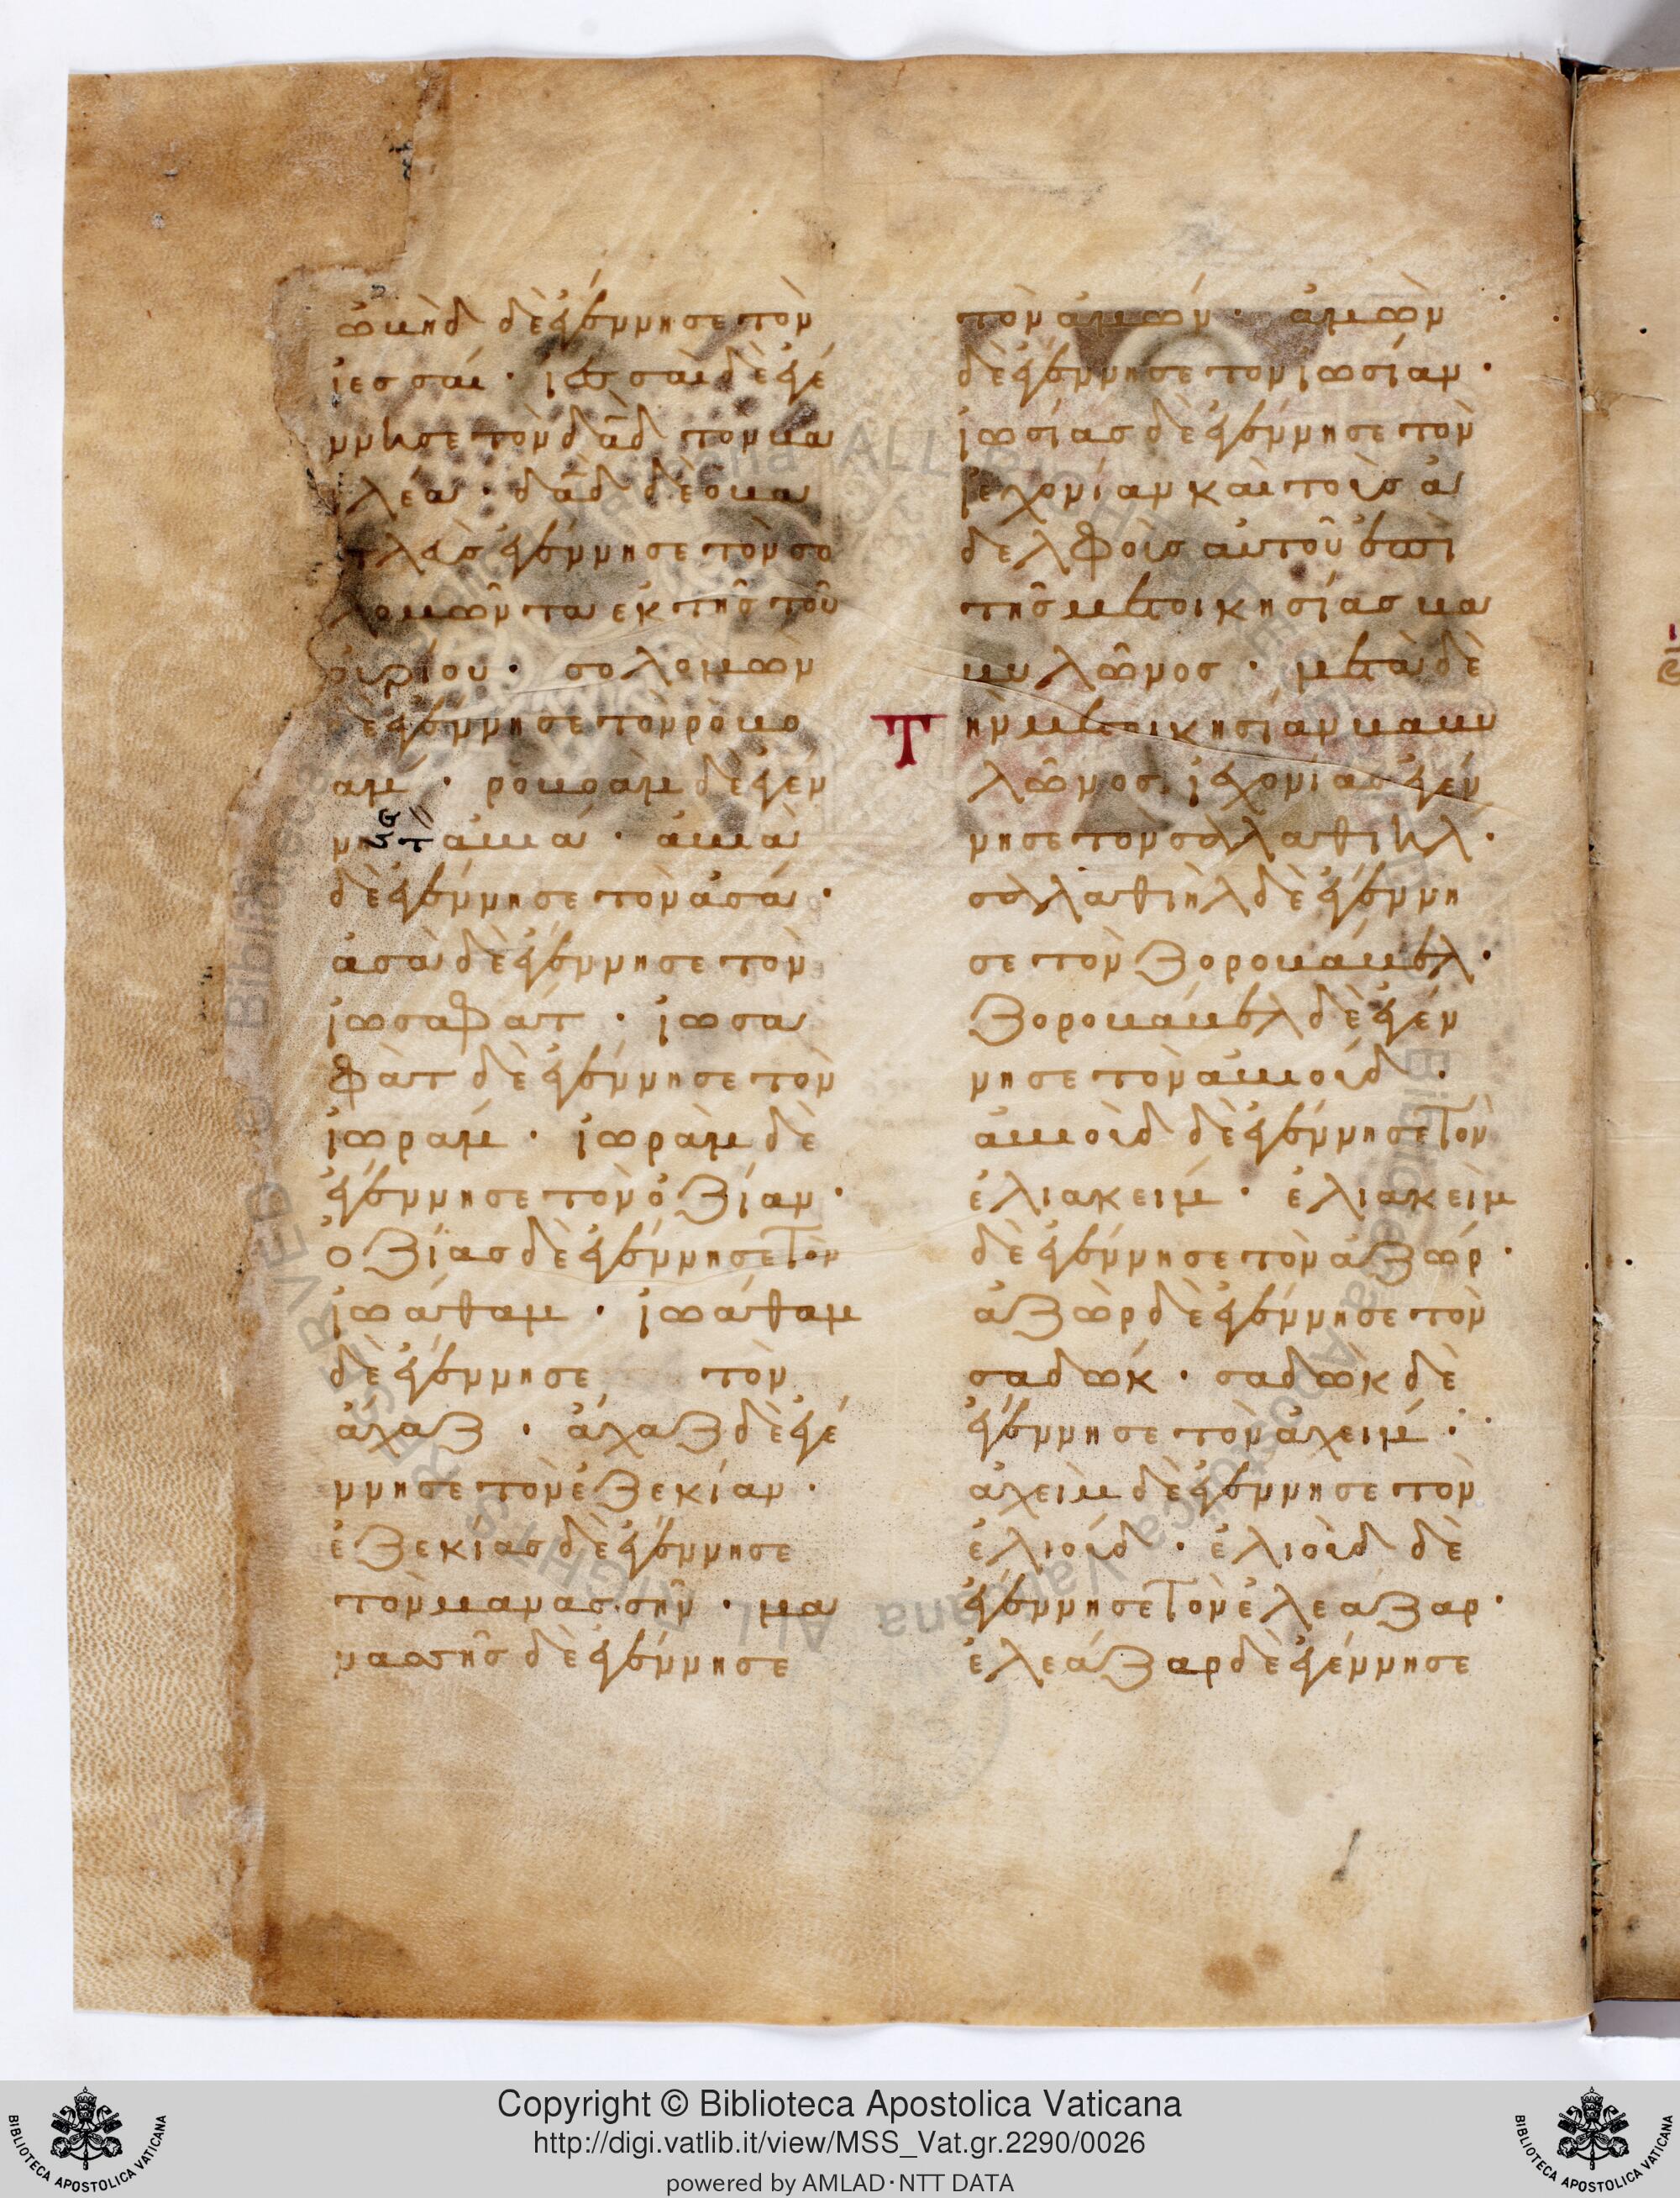 ὠβὴδ δὲ ἐγέννησε τὸν
ἰεσσαί · ἰεσσαὶ δὲ ἐγέ
ννησε τὸν δᾱδ τον βα
λέα · δᾱδ δὲ ὁ βα
λεὺσ ἐγέννησε τὸν σο
λομῶντα ἐκ τῆσ τοῦ
οὐρίου · σολομὼν
δὲ ἐγέννησε τὸν ῥοβο
αμ · ῥοβοὰμ δὲ ἐγέν
νησε τ ἀβιά · ἀβιὰ
δὲ ἐγέννησε τὸν ἀσά ·
ἀσὰ δὲ ἐγέννησε τὸν
ἰωσαφατ · ἰωσα
φὰτ δὲ ἐγέννησε τὸν
ἰωράμ · ἰωρὰμ δὲ
ἐγέννησε τὸν ὀζίαν ·
ὀζίασ δὲ ἐγέννησε τὸν
ἰωάθαμ · ἰωάθαμ
δὲ ἐγέννησε τὸν
ἄχαζ · ἄχαζ δὲ ἐγέ
ννησε τὸν ἐζεκίαν ·
ἐζεκίασ δὲ ἐγέννησε
τὸν μανασσῆν · μα
νασσῆσ δὲ ἐγέννησε
τὸν ἀμών · ἀμὼν
δὲ ἐγέννησε τον ἰωσίαν ·
ἰωσίασ δὲ ἐγέννησε τὸν
ἰεχονίαν καὶ τοὺσ ἀ
δελφοὺσ αὐτοῦ ἐπὶ
τῆσ μετοικησίασ βα
βυλῶνοσ · μετὰ δὲ
Τὴν μετοικησίαν βαβυ
λῶνοσ ἰεχονίασ ἐγέν
νησε τὸν σαλαθιήλ ·
σαλαθιὴλ δὲ ἐγέννη
σε τὸν ζοροβάβελ ·
ζοροβάβελ δὲ ἐγέν
νησε τὸν ἀβιούδ ·
ἀβιοὺδ δὲ ἐγέννησε τὸν
ἐλιακειμ · ἐλιακεὶμ
δὲ ἐγέννησε τὸν ἀζώρ ·
ἀζὼρ δὲ ἐγέννησε τὸν
σαδώκ · σαδὼκ δὲ
ἐγέννησε τὸν ἀχειμ ·
ἀχεὶμ δὲ ἐγέννησε τὸν
ἐλιούδ · ἐλιοὺδ δὲ
ἐγέννησε τὸν ἐλεάζαρ ·
ἐλεάζαρ δὲ ἐγέννησε
BIBLIOTECA APOSTOLICA VATICANA
Copyright © Biblioteca Apostolica Vaticana
http://digi.vatlib.it/view/MSS_Vat.gr.2290/0026
powered by AMLAD·NTT DATA
BIBLIOTECA APOSTOLICA VATICANA